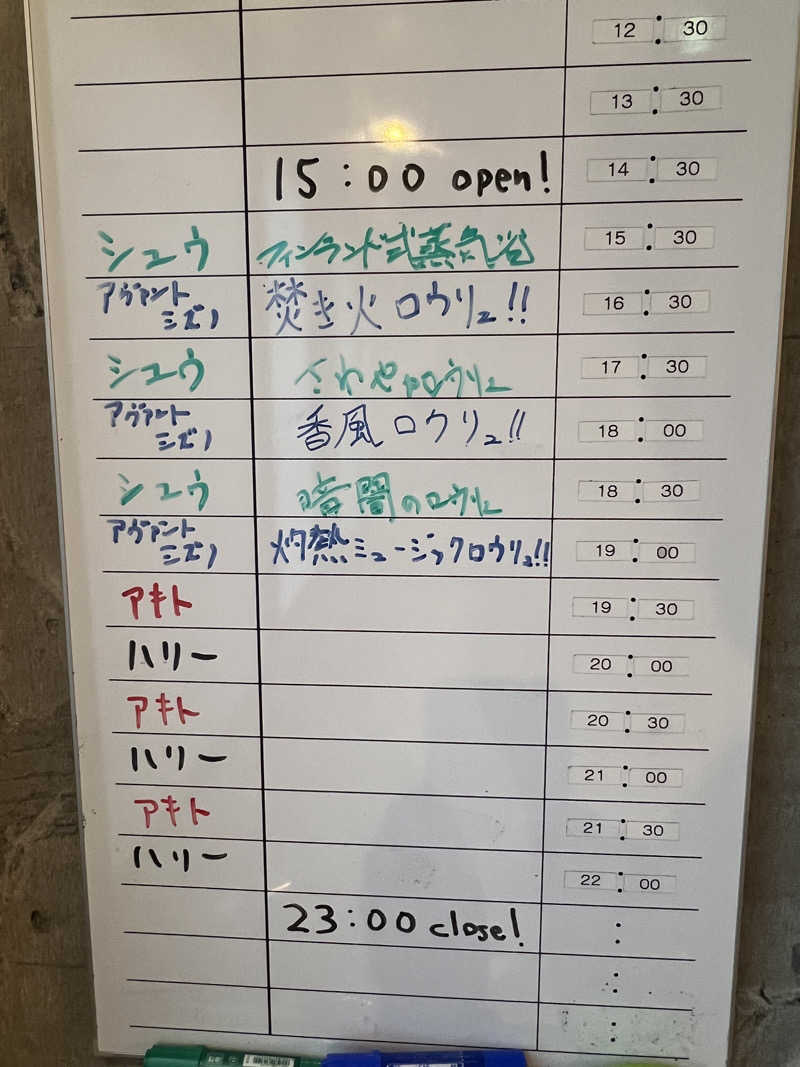 12 : 30
13 : 30
15:00 open! 14 : 30
シュウ フィンランド式蒸気浴 15 : 30
アヴァント
ミズノ 焚き火ロウリュ!! 16 : 30
シュウ ロウリュ 17 : 30
アヴァント
ミズノ 香風ロウリュ!! 18 : 00
シュウ 暗闇のロウリュ 18 : 30
アヴァント
ミズノ 灼熱ミュージックロウリュ!! 19 : 00
アキト 19 : 30
ハリー 20 : 00
アキト 20 : 30
ハリー 21 : 00
アキト 21 : 30
ハリー 22 : 00
23:00 close! :
:
: